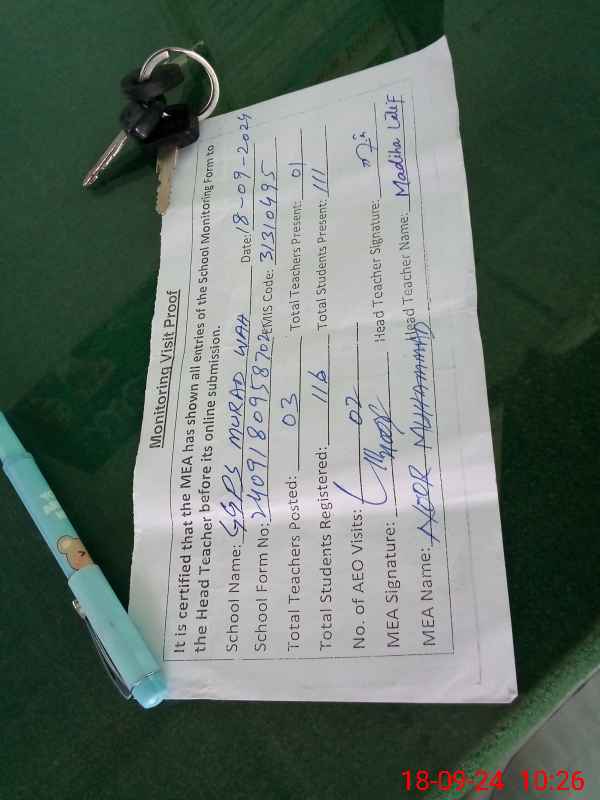 Monitoring Visit Proof
It is certified that the MEA has shown all entries of the School Monitoring Form to
the Head Teacher before its online submission.
School Name: GGPS MURAD WAH Date: 18-09-2024
School Form No: 24091809587024 EMIS Code: 31310495
Total Teachers Posted: 03 Total Teachers Present: 01
Total Students Registered: 116 Total Students Present: 111
No. of AEO Visits: 02
MEA Signature: Head Teacher Signature:
MEA Name: NOOR MUHAMMAD Head Teacher Name: Madiha Latif
18-09-24 10:26